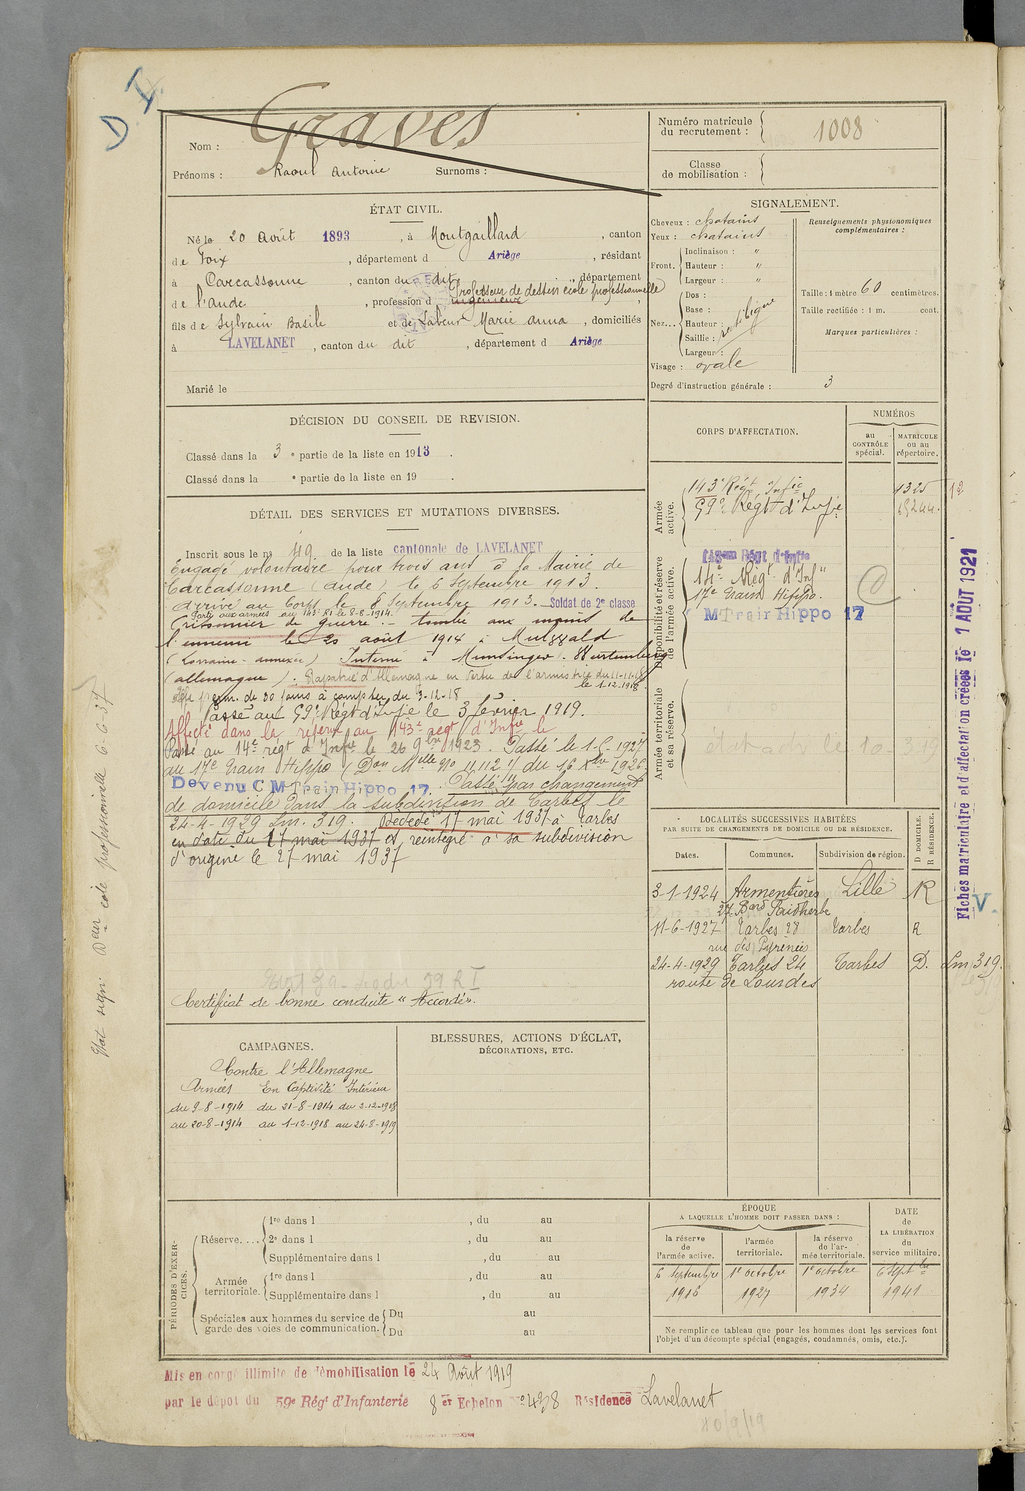 D
Nom : Graves
Prénoms : Raoul Antoine Surnoms :
Numéro matricule du recrutement : 1008
Classe de mobilisation :
ÉTAT CIVIL.
Né le 20 Août 1893, à Montgaillard, canton
de Foix, département d Ariège, résidant
à Carcassonne, canton du dit, département
professeur de dessin école professionnelle
de l'Aude, profession d ingénieur
fils de Sylvain Basile et de Marie Anna, domiciliés
à LAVELANET, canton du dit, département d Ariège
Marié le
SIGNALEMENT.
Cheveux : chatains
Yeux : chatains
Front. Inclinaison : "
Hauteur : "
Largeur : "
Nez... Dos :
Base :
Hauteur :
Saillie :
Largeur :
rectiligne
Visage : ovale
Renseignements physionomiques complémentaires :
Taille : 1 mètre 60 centimètres.
Taille rectifiée : 1 m. cent.
Marques particulières :
Degré d'instruction générale : 3
DÉCISION DU CONSEIL DE REVISION.
Classé dans la 3e partie de la liste en 1913.
Classé dans la e partie de la liste en 19 .
DÉTAIL DES SERVICES ET MUTATIONS DIVERSES.
Inscrit sous le n° 49 de la liste cantonale de LAVELANET
Engagé volontaire pour trois ans à la Mairie de
Carcassonne (Aude) le 6 Septembre 1913.
Arrivé au Corps le 8 Septembre 1913. Soldat de 2e classe
Parti aux armées au 143e RI le 8-8-1914.
Prisonnier de guerre. - tombé aux mains de
l'ennemi le 20 août 1914 à
(Lorraine annexée) Interné à Munsingen. Wurtemberg
(Allemagne). Rapatrié d'Allemagne en vertu de l'armistice du 11-11-18
le 1-12-1918
perm. de 30 jours à compter du 3-12-18
Passé au 59e Régt d'Infie le 3 février 1919.
Affecté dans la réserve au 143e régt d'Infie le
Passé au 14e régt d'Infie le 26 9bre 1923. Passé le 1-5-1927
au 17e Train Hippo (Don Mlle No 11.112 du 16 Xbre 1926
Devenu C M Train Hippo 17. Passé par changement
de domicile dans la subdivision de Tarbes le
24-4-1929 Lm. 319. Décédé 17 mai 1937 à Tarbes
en date du 17 mai 1937 et réintégré à sa subdivision
d'origine le 27 mai 1937
Certificat de bonne conduite "Accordé".
CORPS D'AFFECTATION.
NUMÉROS
au CONTRÔLE spécial.
MATRICULE ou au répertoire.
Armée active.
143e Régt Infie 4325
59e Régt d'Infie
Disponibilité et réserve de l'armée active.
14e Régt d'Infie
17e Train Hippo.
M Train Hippo 17
Armée territoriale et sa réserve.
LOCALITÉS SUCCESSIVES HABITÉES
PAR SUITE DE CHANGEMENTS DE DOMICILE OU DE RÉSIDENCE.
Dates. Communes. Subdivision de région. D DOMICILE. R RÉSIDENCE.
3-1-1924 Armentières Lille R
27 Bard Faidherbe
11-6-1927 Tarbes 28 Tarbes R
rue des Pyrénées
24-4-1929 Tarbes 24 Tarbes D. Lm 319.
route de Lourdes
Fiches matriculaire et d'affectation créées le 1 AOUT 1921
V
CAMPAGNES.
Contre l'Allemagne
Armées En Captivité Intérieur
du 8-8-1914 du 21-8-1914 du 2-12-1918
au 20-8-1914 au 1-12-1918 au 24-8-1919
BLESSURES, ACTIONS D'ÉCLAT,
DÉCORATIONS, ETC.
PÉRIODES D'EXERCICES.
Réserve.... 1re dans l , du au
2e dans l , du au
Supplémentaire dans l , du au
Armée territoriale. 1re dans l , du au
Supplémentaire dans l , du au
Spéciales aux hommes du service de garde des voies de communication. Du au
Du au
ÉPOQUE
A LAQUELLE L'HOMME DOIT PASSER DANS :
la réserve de l'armée active.
l'armée territoriale.
la réserve de l'armée territoriale.
DATE de LA LIBÉRATION du service militaire.
6 Septembre 1916
1er octobre 1927
1er octobre 1934
6 Septbre 1941
Ne remplir ce tableau que pour les hommes dont les services font
l'objet d'un décompte spécial (engagés, condamnés, omis, etc.).
Mis en congé illimité de démobilisation le 24 Août 1919
par le dépôt du 59e Régt d'Infanterie 8e Echelon n° 438 Résidence Lavelanet